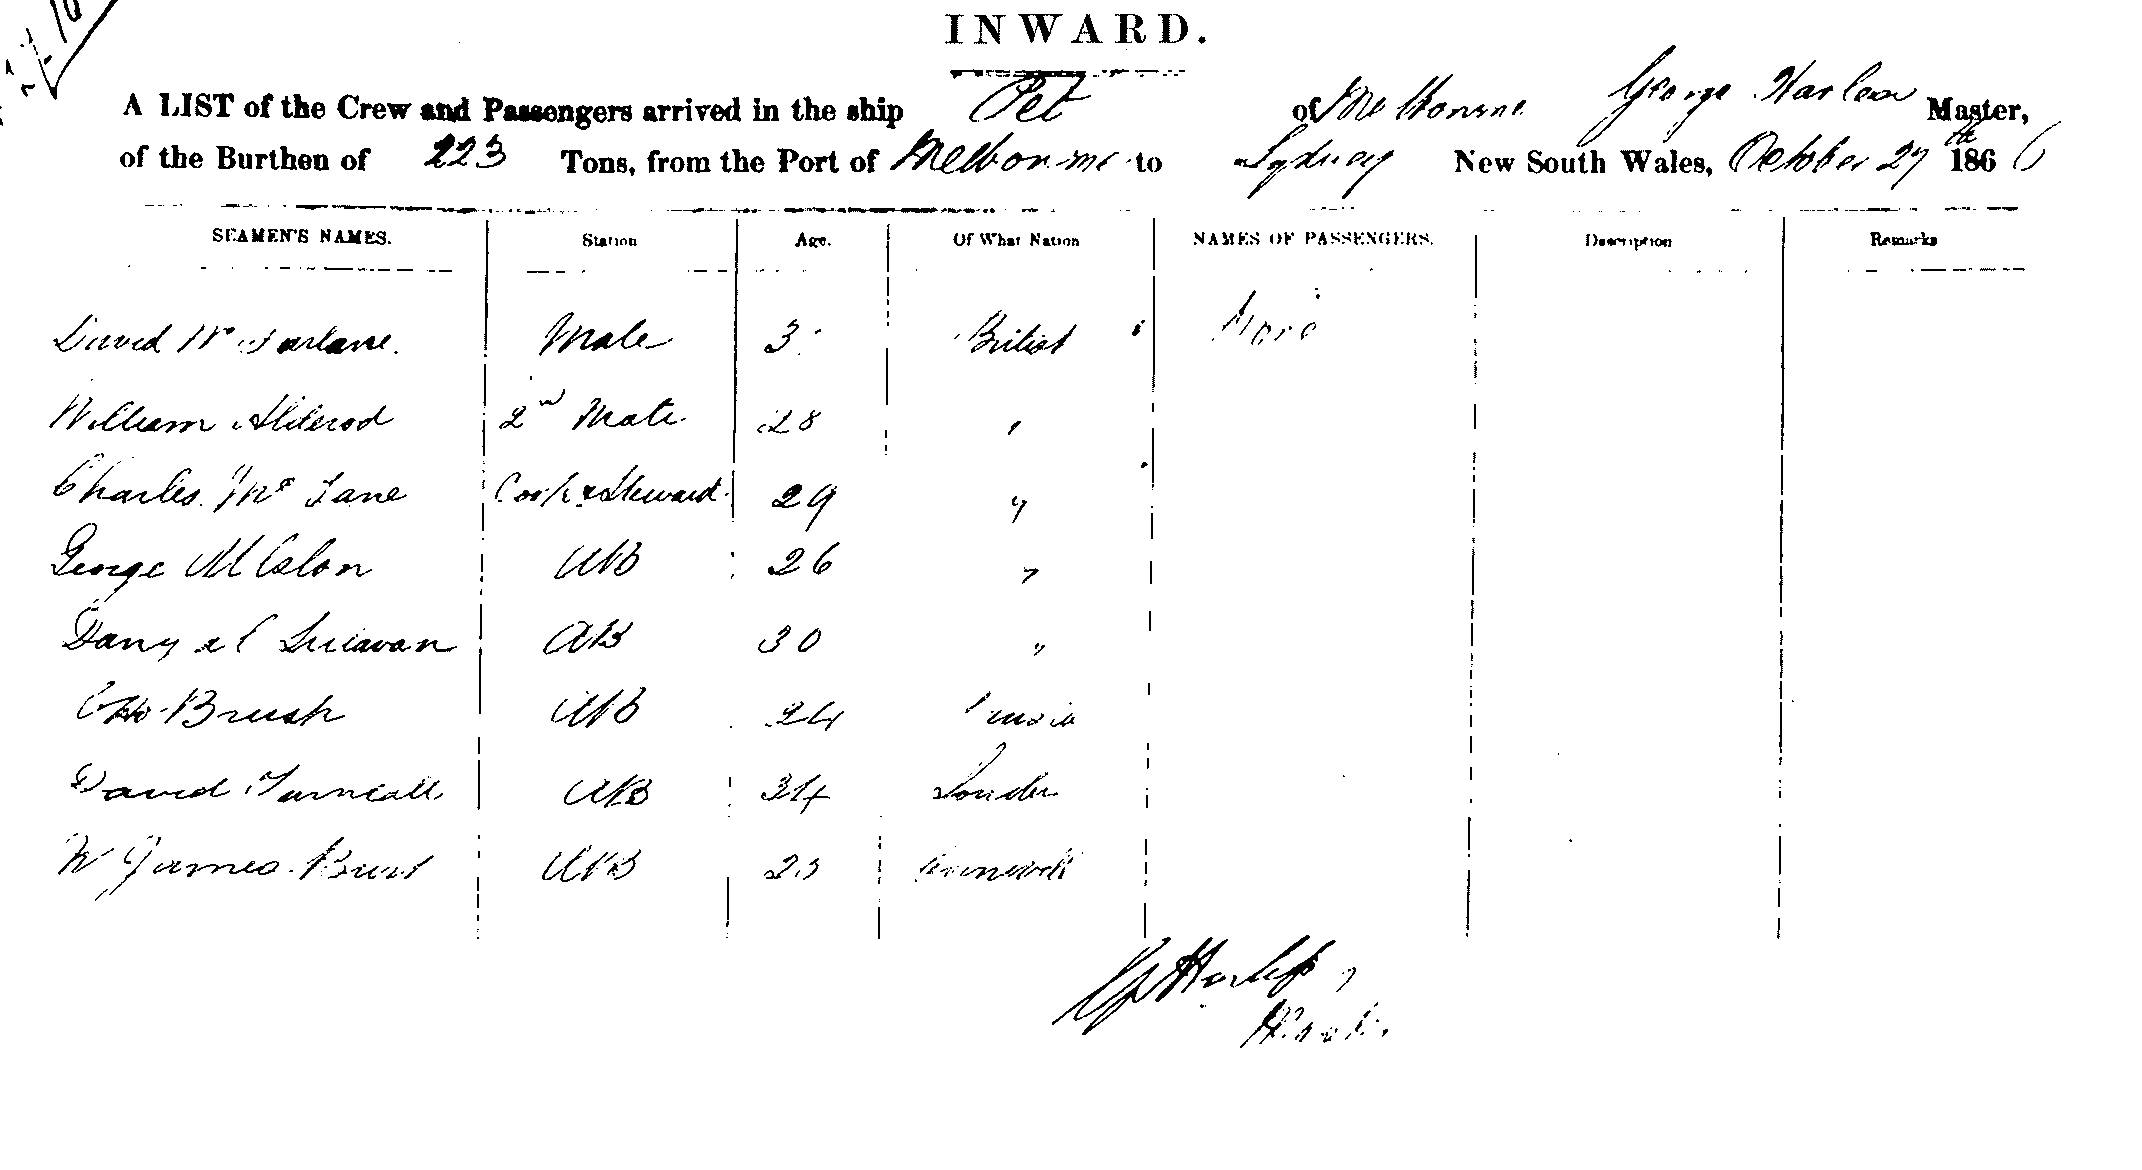 INWARD.
A LIST of the Crew and Passengers arrived in the ship Pet of Melbourne George Master,
of the Burthen of 223 Tons, from the Port of Melbourne to Sydney New South Wales, October 27th 1866
SEAMEN'S NAMES. Station Age. Of What Nation NAMES OF PASSENGERS. Description Remarks
David Mc Farlane. Mate 3 British None
William 2nd Mate 28 "
Charles Mc Lane Cook & Steward 29 "
George AB 26 "
AB 30 "
Otto Brush AB 24
David AB 34 London
W James AB 23